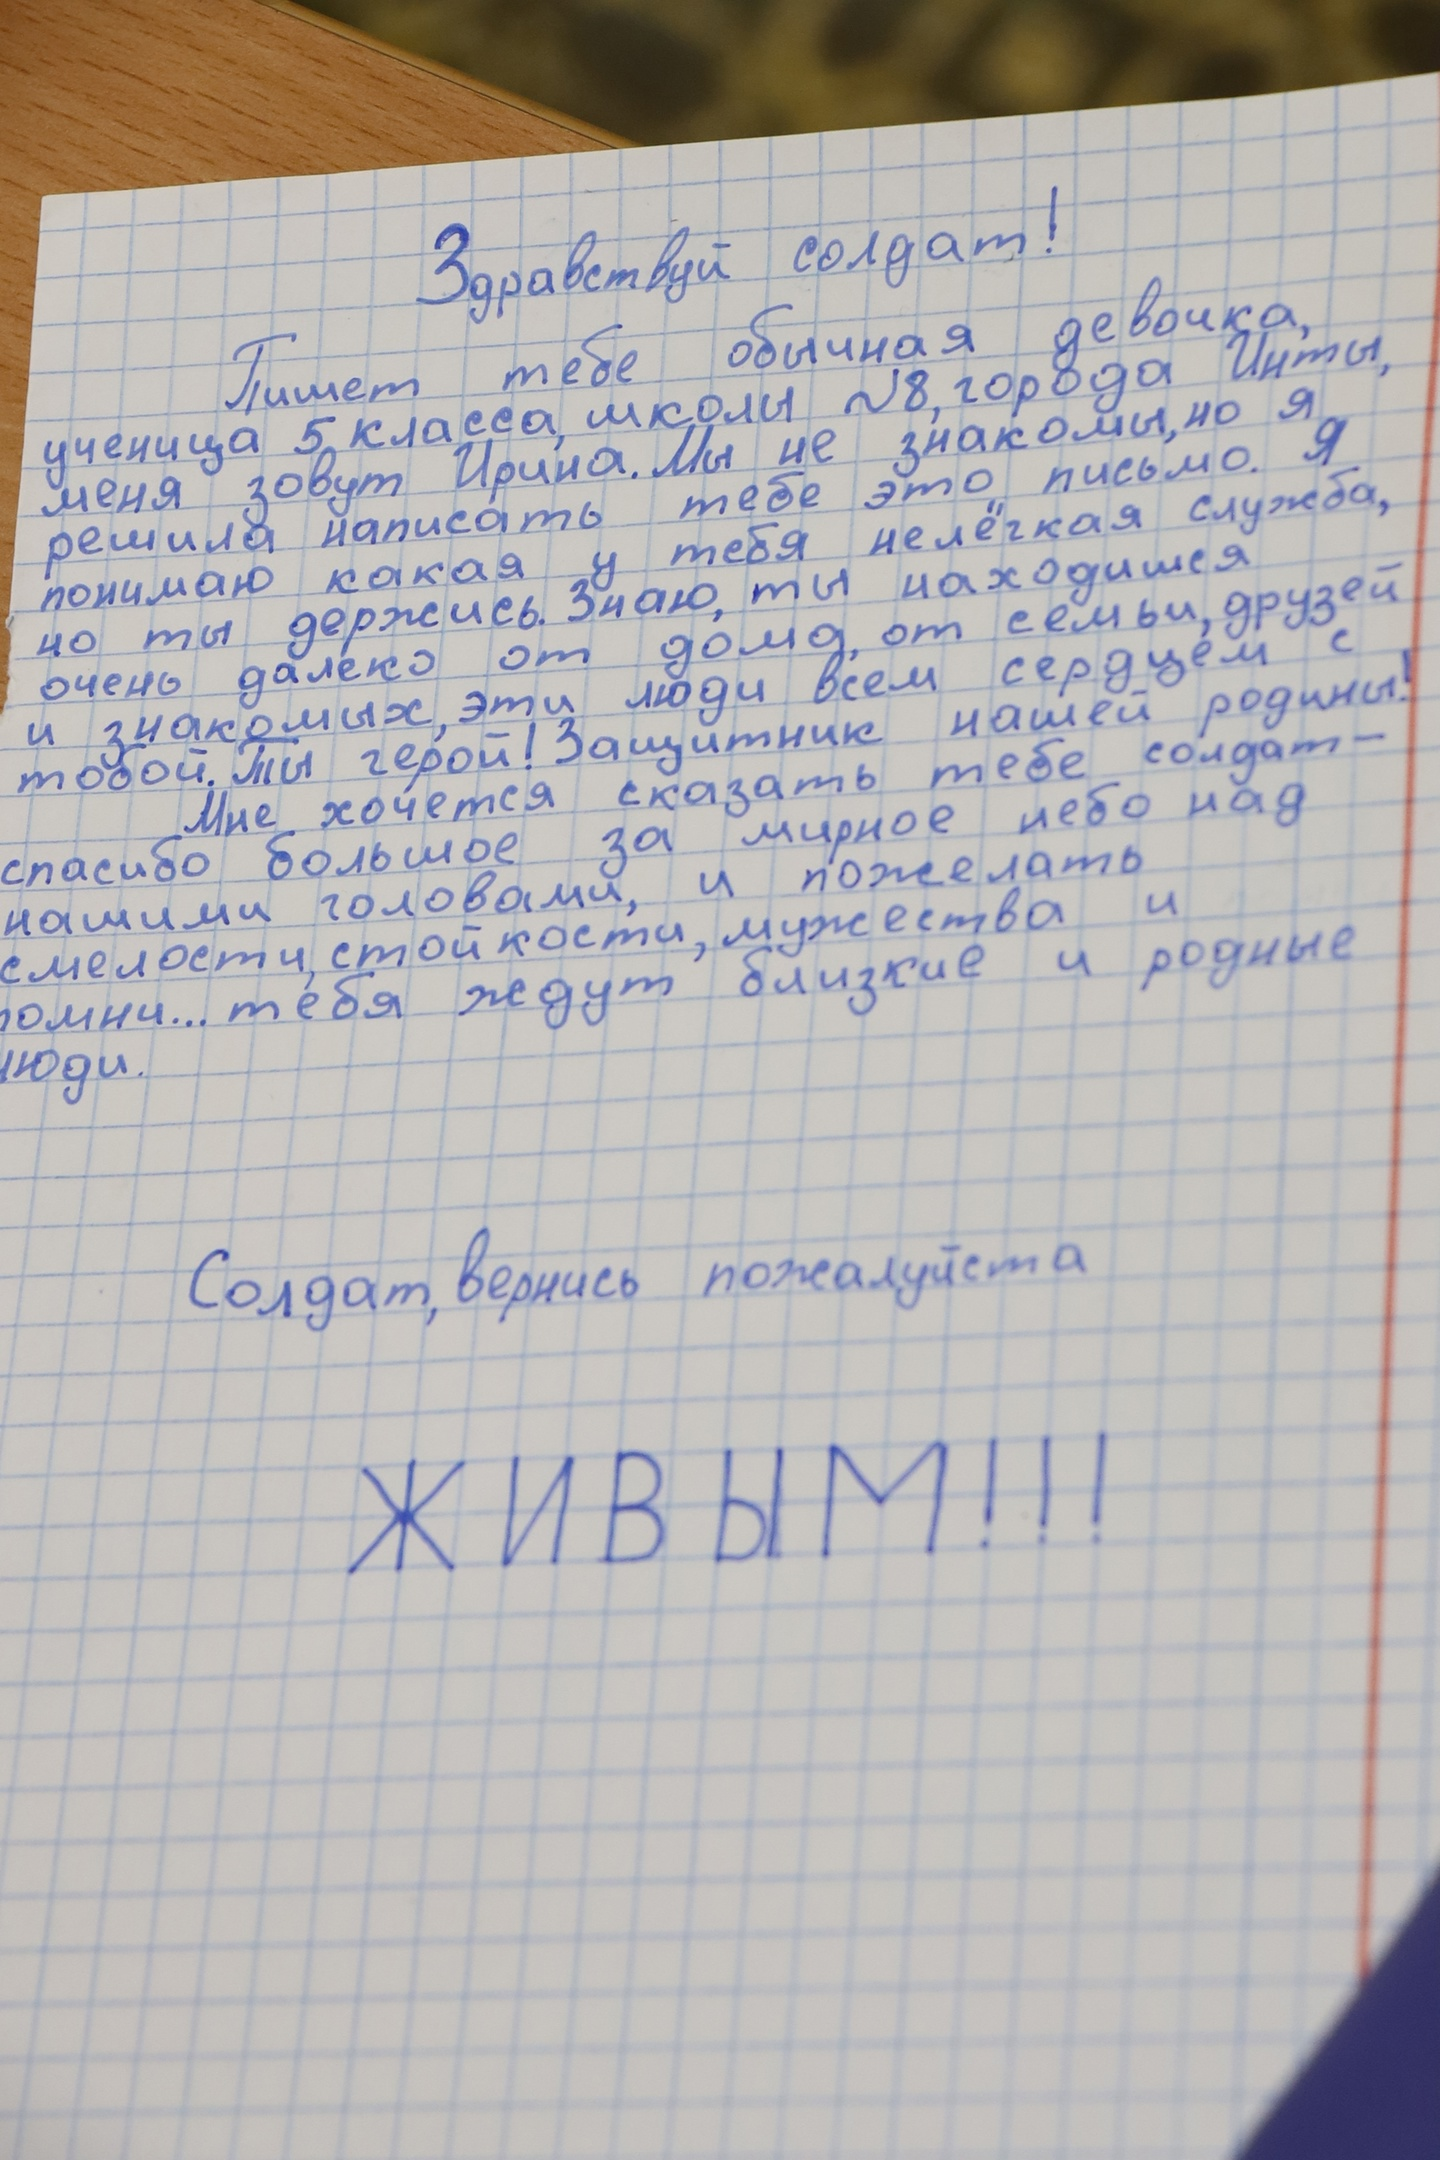 Здравствуй солдат!
Пишет тебе обычная девочка,
ученица 5 класса, школы №8, города Инты,
меня зовут Ирина. Мы не знакомы, но я
решила написать тебе это письмо. Я
понимаю какая у тебя нелёгкая служба,
но ты держись. Знаю, ты находишся
очень далеко от дома, от семьи, друзей
и знакомых, эти люди всем сердцем с
тобой. Ты герой! Защитник нашей родины!
Мне хочется сказать тебе солдат –
спасибо большое за мирное небо над
нашими головами, и пожелать
смелости, стойкости, мужества и
помни... тебя ждут близкие и родные
люди.
Солдат, вернись пожалуйста
ЖИВЫМ!!!